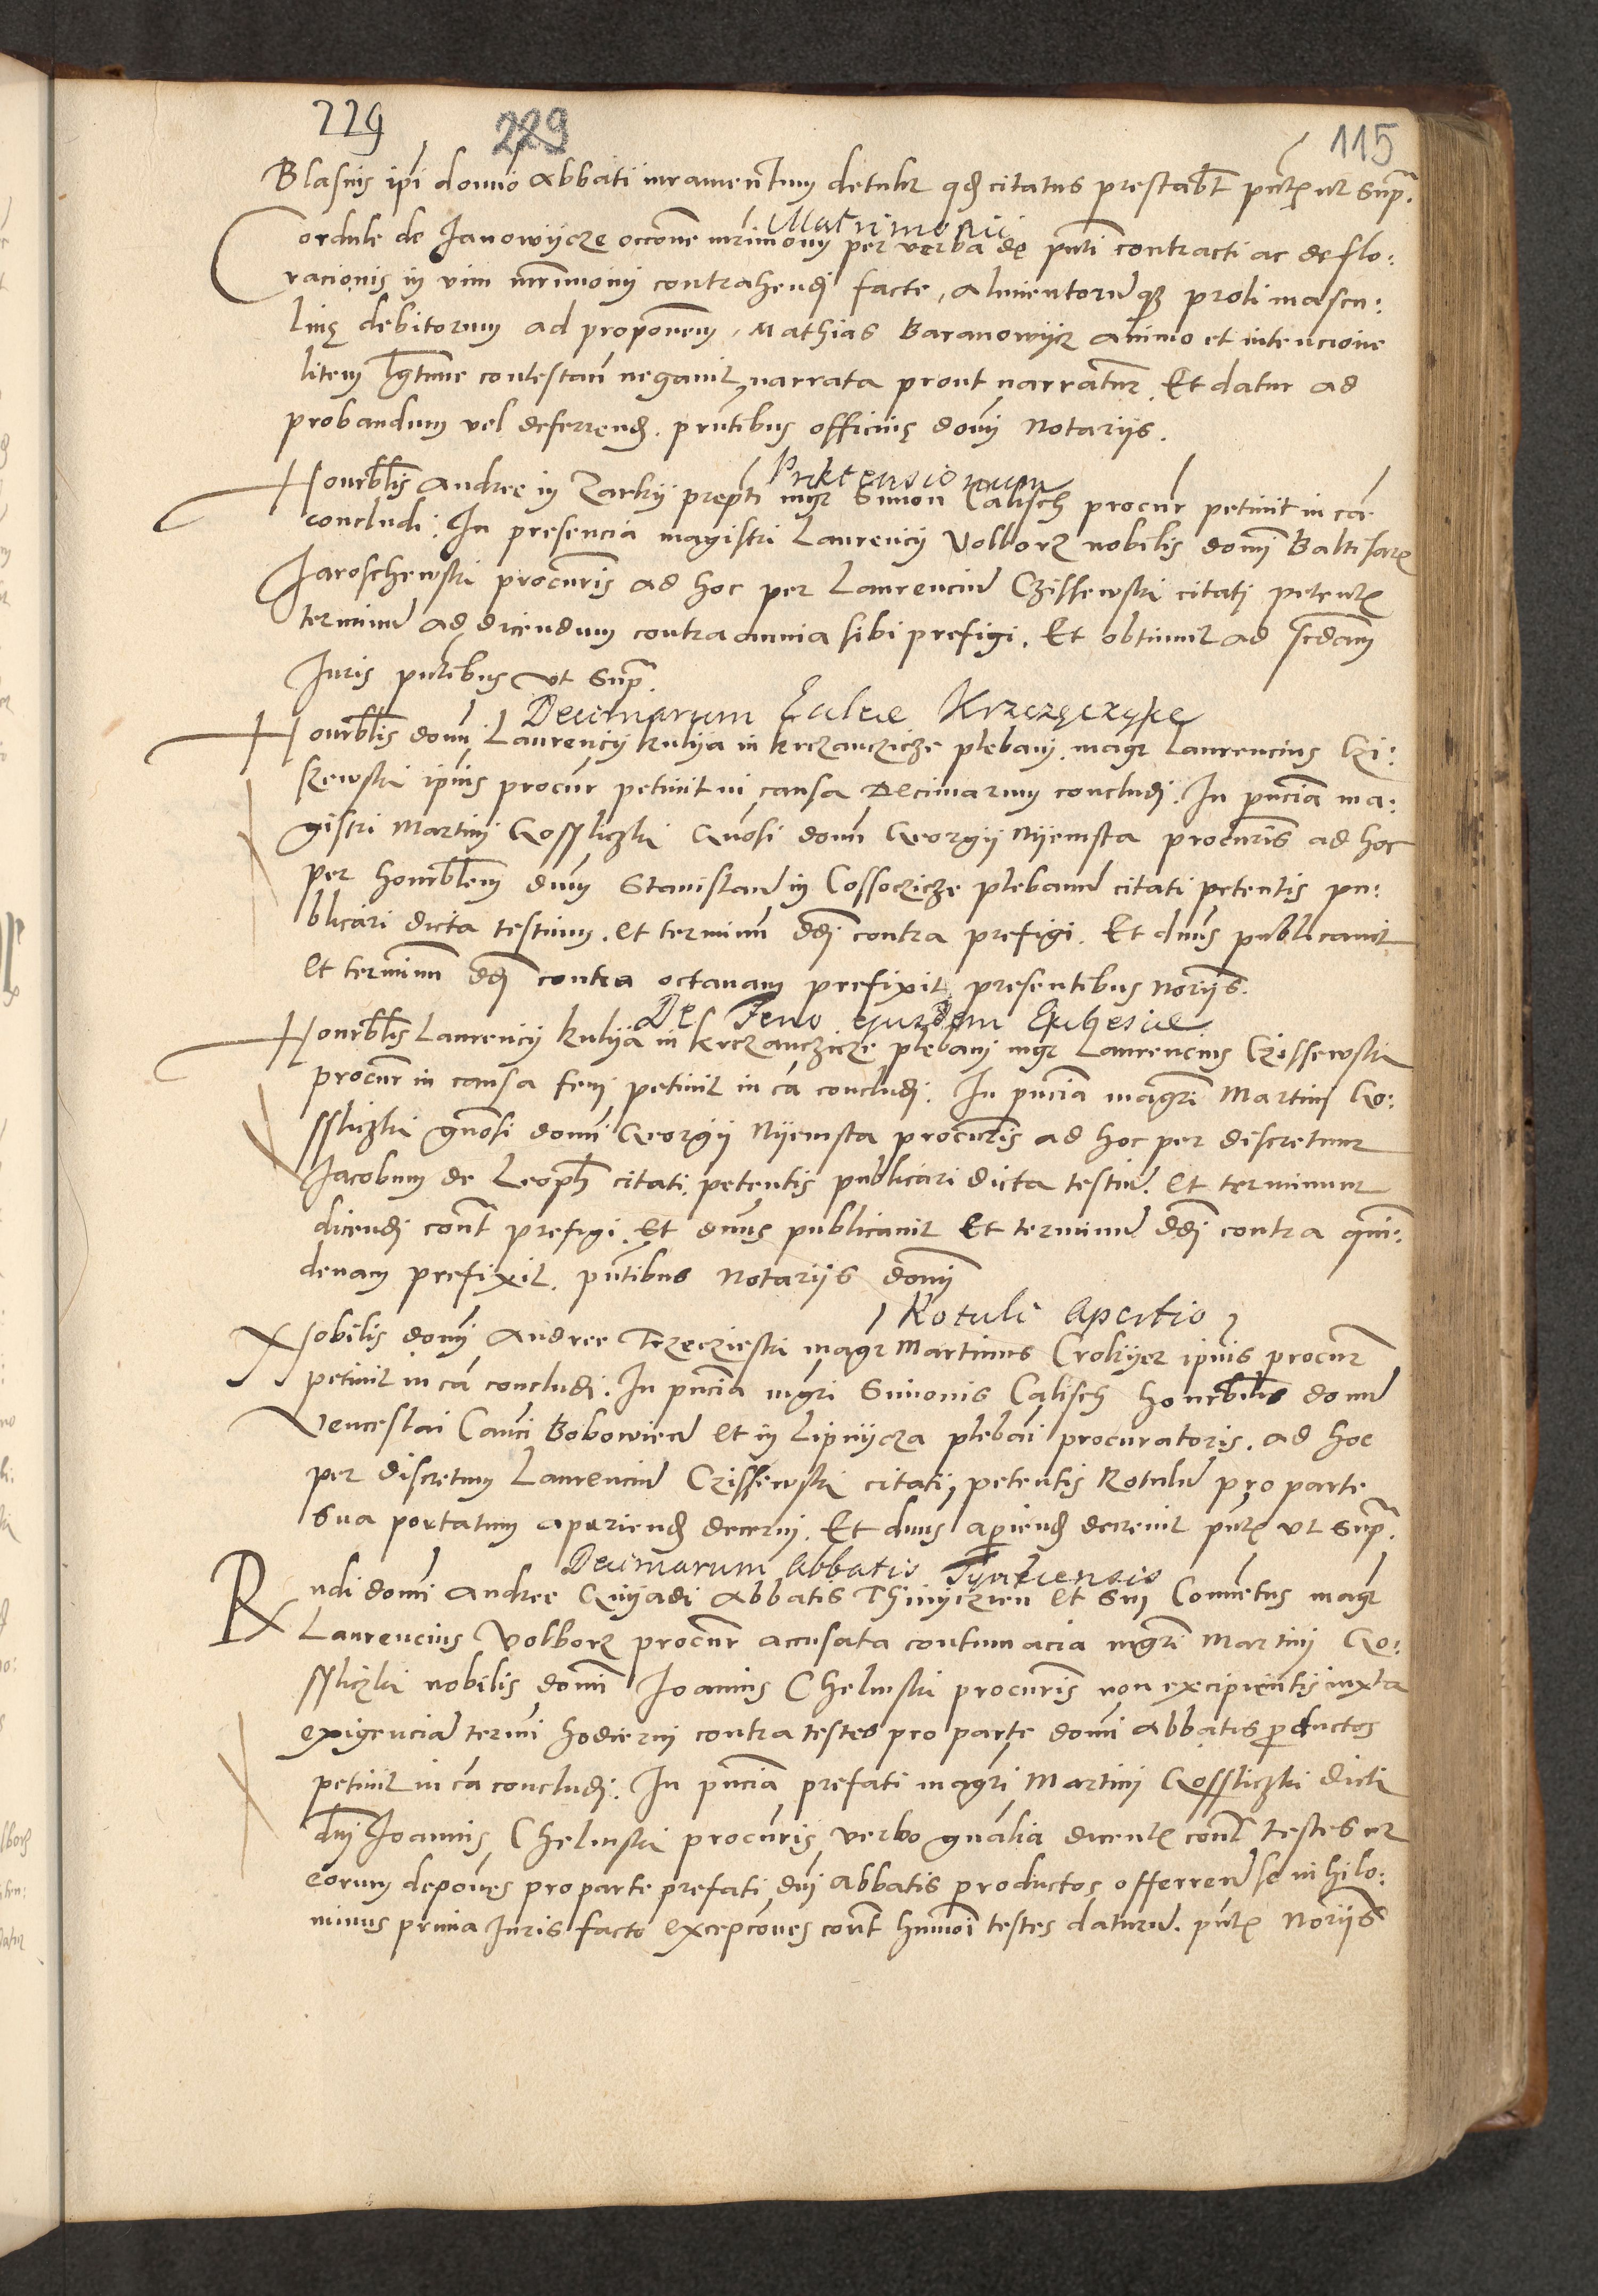 229 229 115
Blasius ipi domio Abbati iuramentum detulit qd citatus prestabt pntz ut supra.
Matrimonii
Cordule de Janowijcze occone mrimonij per verba de pnti contracti ac deflo:
racionis in vim mrimonij contrahendi facte, alimentorum qz proli mascu:
line debitorum ad proponem, Mathias Baranowijcz animo et intencione
litem lgtime contestan negavit narrata prout narrantur. Et datur ad
probandum vel deferrend. pntibus officiis domi Notarijs.
Praetensionum
Honrblis Andree in Zarkij prepti mgr Simon Calisch procur petivit in ca
concludi: In presencia magistri Laurencij Volborz nobilis domi Baltisarz
Jaroschewski procuris ad hoc per Laurenciu Czissewski citati petentz
terminu ad dicendum contra omnia sibi prefigi. Et obtinuit ad scdam
Juris pntibus ut supra.
Decimarum Eccleiae Krzczęczyce
Honrblis domi Laurencij kulija in krczanczicze plebani. magr Laurencius Czi:
szewski ipius procur petivit in causa Decimarum concludi. In pnciam ma:
gistri Martini Gossliczki Gnosi domi Georgij Nijemsta procuris ad hoc
per honrblem dnum Stanislau in Cossoczicze plebanu citati petentis pu:
blicari dicta testium. et terminu ddi contra prefigi. Et dnus publicavit
Et terminu ddi contra octavam prefixit presentibus Norijs.
De Feno ejusdem Ecclesiae
Honrblis Laurencij kulija in krczanczicze plebani mgr Laurencius Czissewski
procur in causa feni petivit in ca concludi. In pncia magri Martini Go:
sslitzki gnosi domi Georgij Nijemsta procuris ad hoc per discretum
Jacobum de Leoph citati petentis publicari dicta testiu. et terminum
dicendi cont prefigi. Et dnus publicavit Et terminu ddi contra quin:
denam prefixit. pntibus Notarijs domi
Rotuli Apertio
Nobilis domi Andree Trzeczieski magr Martinus Crokijer ipius procur
petivit in ca concludi. In pncia mgri Simonis Calisch honrbilis domi
Venceslai Canci Bobowien Et in Lipnijcza plebai procuratoris. ad hoc
per discretum Laurenciu Czissewski citati, petentis Rotulu pro parte
sua portatum aperiend decerni. Et dnus apiend decrevit pntz ut supra.
Decimarum Abbatis Tynecensis
Rndi domi Andree Gnijadi Abbatis Thinijczien Et sui Conventus magr
Laurencius Volborz procur accusata contumacia mgri Martini Go:
sslitzki nobilis domi Joannis Chelmski procuris non excipientis iuxta
exigenciam termi hodierni contra testes pro parte domi abbatis pductos
petivit in ca concludi: In pncia prefati magri Martini Gosslitzki dicti
dni Joannis Chelmski procuris verbo gnalia dicentz cont testes et
eorum depones pro parte prefati dni Abbatis productos offerren se nihilo:
minus prima Juris facto excepcones cont hmoi testes daturu. pntz Norijs